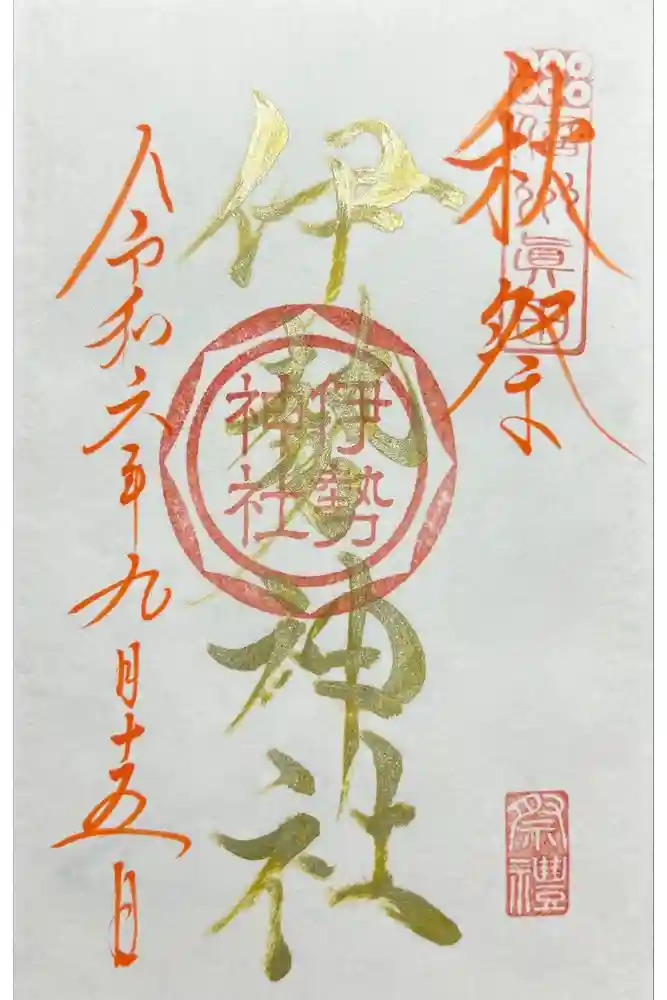 秋祭
信州眞田
伊勢神社
伊勢
神社
令和六年九月十五日
祭禮